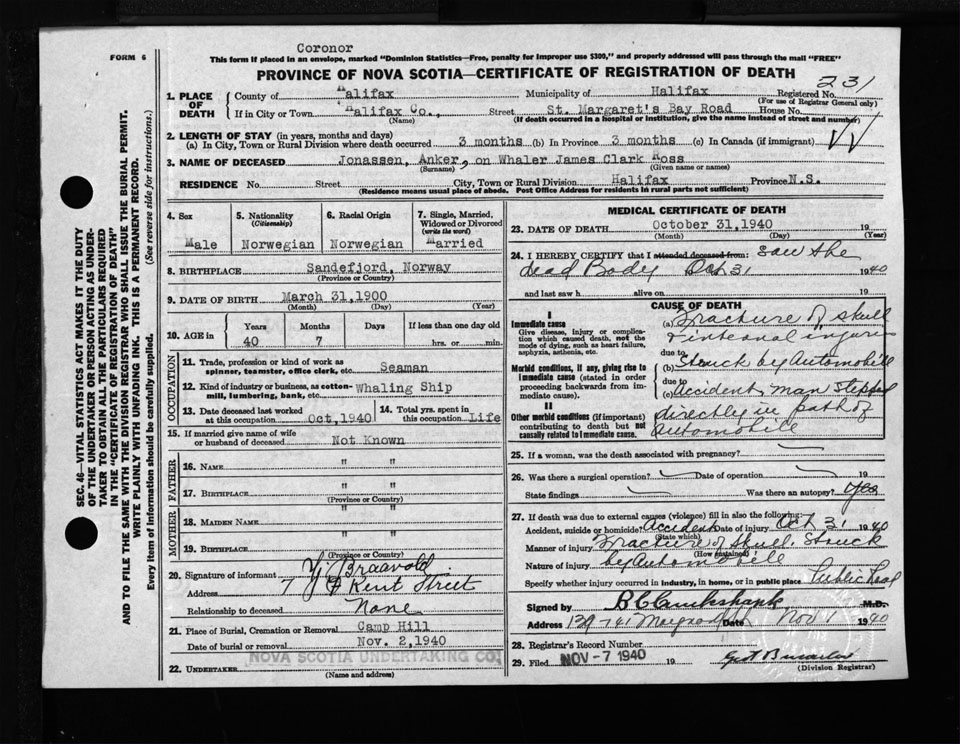 Coronor
FORM 6
This form if placed in an envelope, marked "Dominion Statistics—Free, penalty for improper use $300," and properly addressed will pass through the mail "FREE"
PROVINCE OF NOVA SCOTIA—CERTIFICATE OF REGISTRATION OF DEATH
231
1. PLACE OF DEATH
County of Halifax Municipality of Halifax Registered No.
(For use of Registrar General only)
If in City or Town Halifax Co., Street St. Margaret's Bay Road House No.
(Name) (If death occurred in a hospital or institution, give the name instead of street and number)
2. LENGTH OF STAY (in years, months and days)
(a) In City, Town or Rural Division where death occurred 3 months (b) In Province 3 months (c) In Canada (if immigrant)
3. NAME OF DECEASED Jonassen, Anker, on Whaler James Clark Ross
(Surname) (Given name or names)
RESIDENCE No. Street City, Town or Rural Division Halifax Province N.S.
(Residence means usual place of abode. Post Office Address for residents in rural parts not sufficient)
4. Sex
Male
5. Nationality
(Citizenship)
Norwegian
6. Racial Origin
Norwegian
7. Single, Married, Widowed or Divorced
(write the word)
Married
8. BIRTHPLACE Sandefjord, Norway
(Province or Country)
9. DATE OF BIRTH March 31, 1900
(Month) (Day) (Year)
10. AGE in Years Months Days If less than one day old
40 7 hrs. or min.
OCCUPATION
11. Trade, profession or kind of work as spinner, teamster, office clerk, etc. Seaman
12. Kind of industry or business, as cotton-mill, lumbering, bank, etc. Whaling Ship
13. Date deceased last worked at this occupation Oct, 1940
14. Total yrs. spent in this occupation Life
15. If married give name of wife or husband of deceased Not Known
FATHER
16. NAME " "
17. BIRTHPLACE " "
(Province or Country)
MOTHER
18. MAIDEN NAME " "
19. BIRTHPLACE " "
(Province or Country)
20. Signature of informant Y Braavold
Address 7 Kent Street
Relationship to deceased None
21. Place of Burial, Cremation or Removal Camp Hill
Date of burial or removal Nov. 2, 1940
NOVA SCOTIA UNDERTAKING CO.
22. UNDERTAKER
(Name and address)
MEDICAL CERTIFICATE OF DEATH
23. DATE OF DEATH October 31, 1940 19
(Month) (Day) (Year)
24. I HEREBY CERTIFY that I attended deceased from: saw the
dead Body Oct 31 1940
and last saw h alive on 19
CAUSE OF DEATH
I
Immediate cause
Give disease, injury or complication which caused death, not the mode of dying, such as heart failure, asphyxia, asthenia, etc.
(a) Fracture of skull
& internal injury
due to
Morbid conditions, if any, giving rise to immediate cause (stated in order proceeding backwards from immediate cause).
(b) Struck by Automobile
due to
(c) Accident, man stepped
directly in path of
automobile
II
Other morbid conditions (if important) contributing to death but not causally related to immediate cause.
25. If a woman, was the death associated with pregnancy?
26. Was there a surgical operation? Date of operation 19
State findings Was there an autopsy? Yes
27. If death was due to external causes (violence) fill in also the following:
Accident, suicide or homicide? Accident Date of injury Oct 31 1940
(State which)
Manner of injury Fracture of Skull. Struck
(How sustained)
Nature of injury by Automobile
Specify whether injury occurred in industry, in home, or in public place Public Road
Signed by M.D.
Address 139-141 Date Nov 1 1940
28. Registrar's Record Number
29. Filed NOV - 7 1940 19
(Division Registrar)
SEC. 46—VITAL STATISTICS ACT MAKES IT THE DUTY OF THE UNDERTAKER OR PERSON ACTING AS UNDERTAKER TO OBTAIN ALL THE PARTICULARS REQUIRED IN THE "CERTIFICATE OF REGISTRATION OF DEATH" AND TO FILE THE SAME WITH THE DIVISION REGISTRAR WHO SHALL ISSUE THE BURIAL PERMIT.
WRITE PLAINLY WITH UNFADING INK. THIS IS A PERMANENT RECORD.
Every item of information should be carefully supplied. (See reverse side for instructions.)